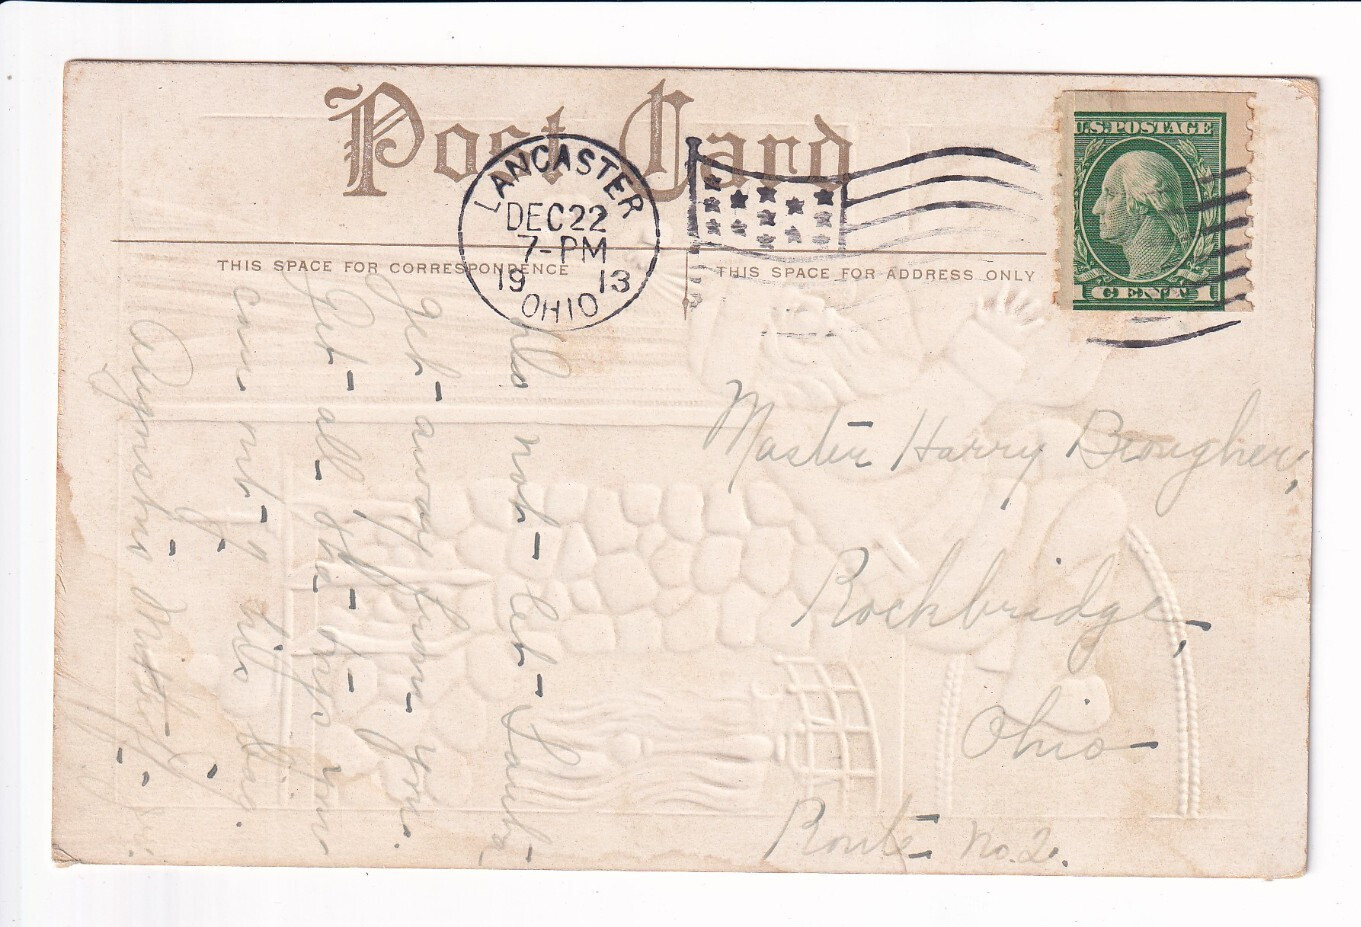 Post Card
LANCASTER
DEC 22
7-PM
1913
OHIO
U.S. POSTAGE
1 CENT 1
THIS SPACE FOR CORRESPONDENCE
THIS SPACE FOR ADDRESS ONLY
Do not let Santa
get away from you.
Get all the toys you
can put in his bag.
Master Harry Brougher,
Rockbridge,
Ohio
Route No. 2.